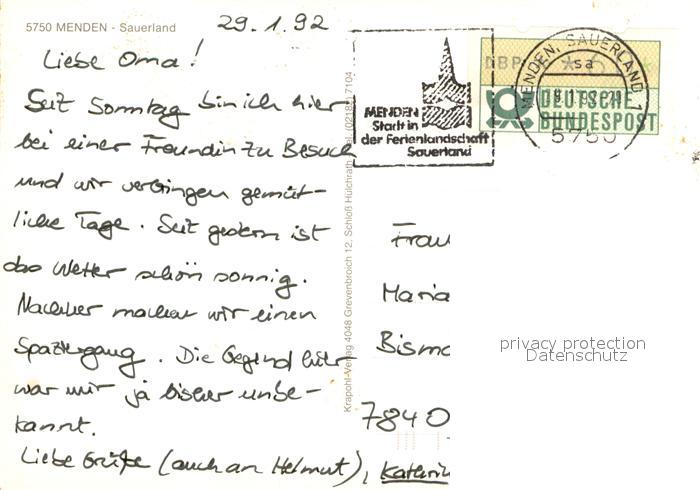 5750 MENDEN - Sauerland
29.1.92
Liebe Oma!
Seit Sonntag bin ich hier
bei einer Freundin zu Besuch
und wir verbringen gemüt-
liche Tage. Seit gestern ist
das Wetter schön sonnig.
Nachher machen wir einen
Spaziergang. Die Gegend hier
war mir ja bisher unbe-
kannt.
Liebe Grüße (auch an Helmut), Kathrin
Krapohl-Verlag 4048 Grevenbroich 12, Schloß Hülchrath
MENDEN
Stadt in
der Ferienlandschaft
Sauerland
DBP
MENDEN, SAUERLAND 1
sa
5750
DEUTSCHE
BUNDESPOST
Frau
Maria
Bisma
7840
privacy protection
Datenschutz